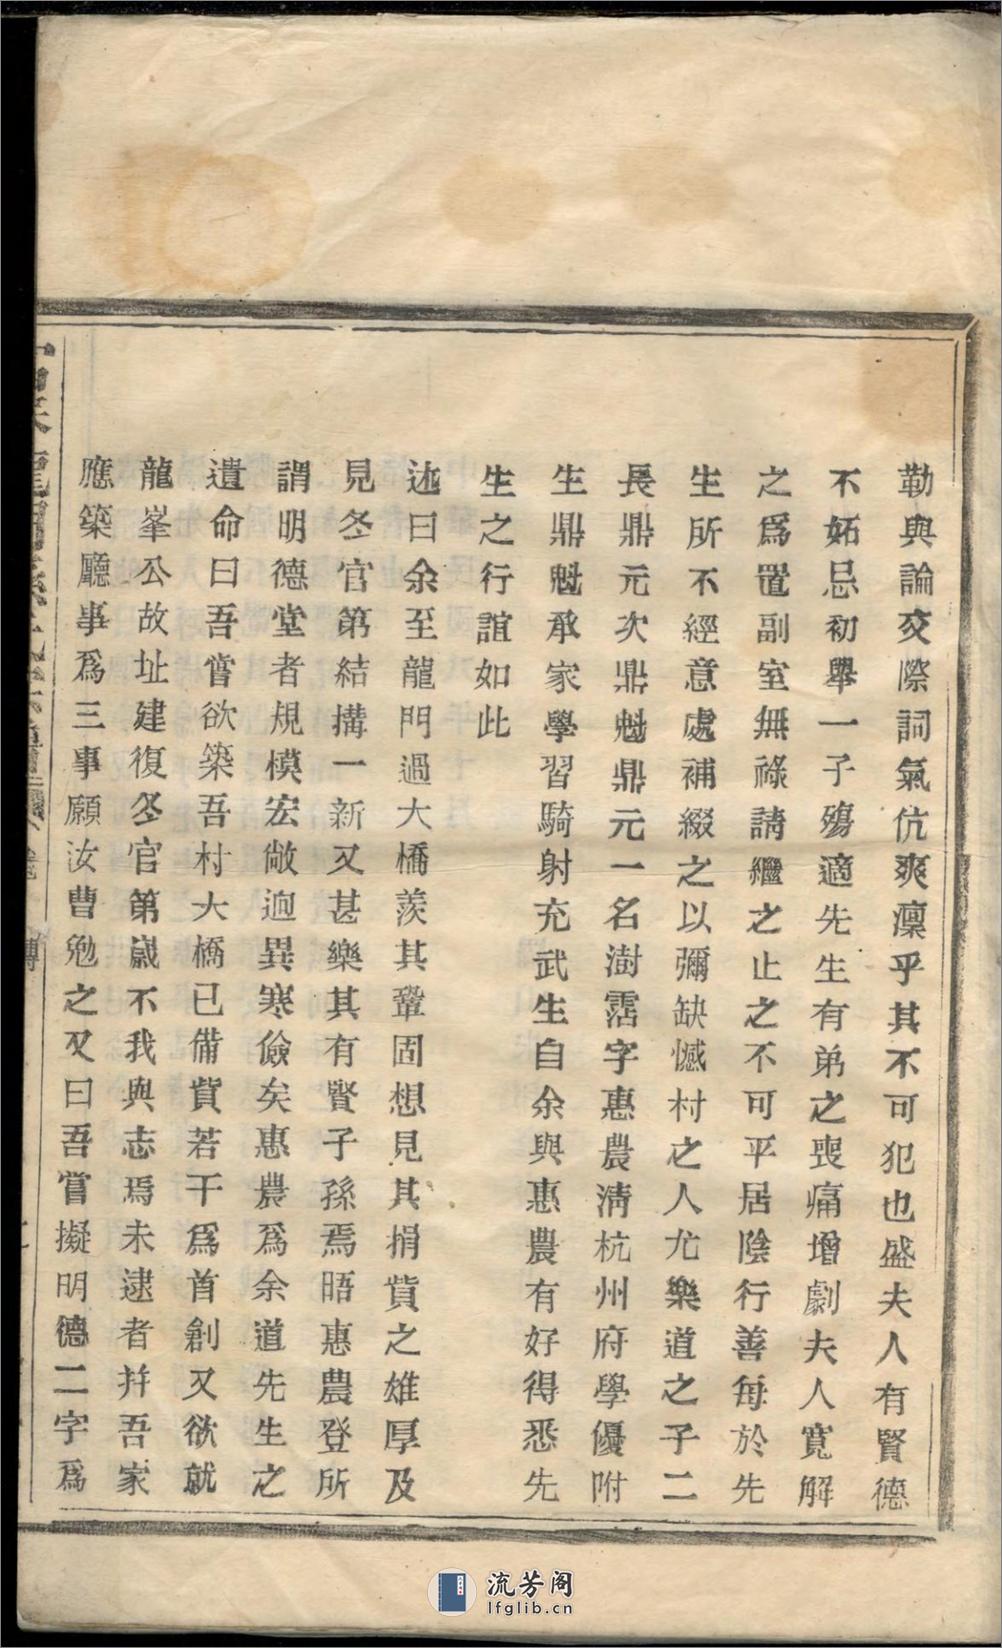 勒與論交際詞氣伉爽凜乎其不可犯也盛夫人有賢德
不妬忌初舉一子殤適先生有弟之喪痛增劇夫人寬解
之爲置副室無祿請繼之止之不可平居陰行善每於先
生所不經意處補綴之以彌缺憾村之人尤樂道之子二
長鼎元次鼎魁鼎元一名澍霑字惠農淸杭州府學優附
生鼎魁承家學習騎射充武生自余與惠農有好得悉先
生之行誼如此
述曰余至龍門過大橋羨其鞏固想見其捐貲之雄厚及
見冬官第結搆一新又甚樂其有賢子孫焉晤惠農登所
謂明德堂者規模宏敞迥異寒儉矣惠農爲余道先生之
遺命曰吾嘗欲築吾村大橋已備貲若干爲首創又欲就
龍峯公故址建復冬官第歲不我與志焉未逮者幷吾家
應築廳事爲三事願汝曹勉之又曰吾嘗擬明德二字爲
傳
流芳阁
lfglib.cn